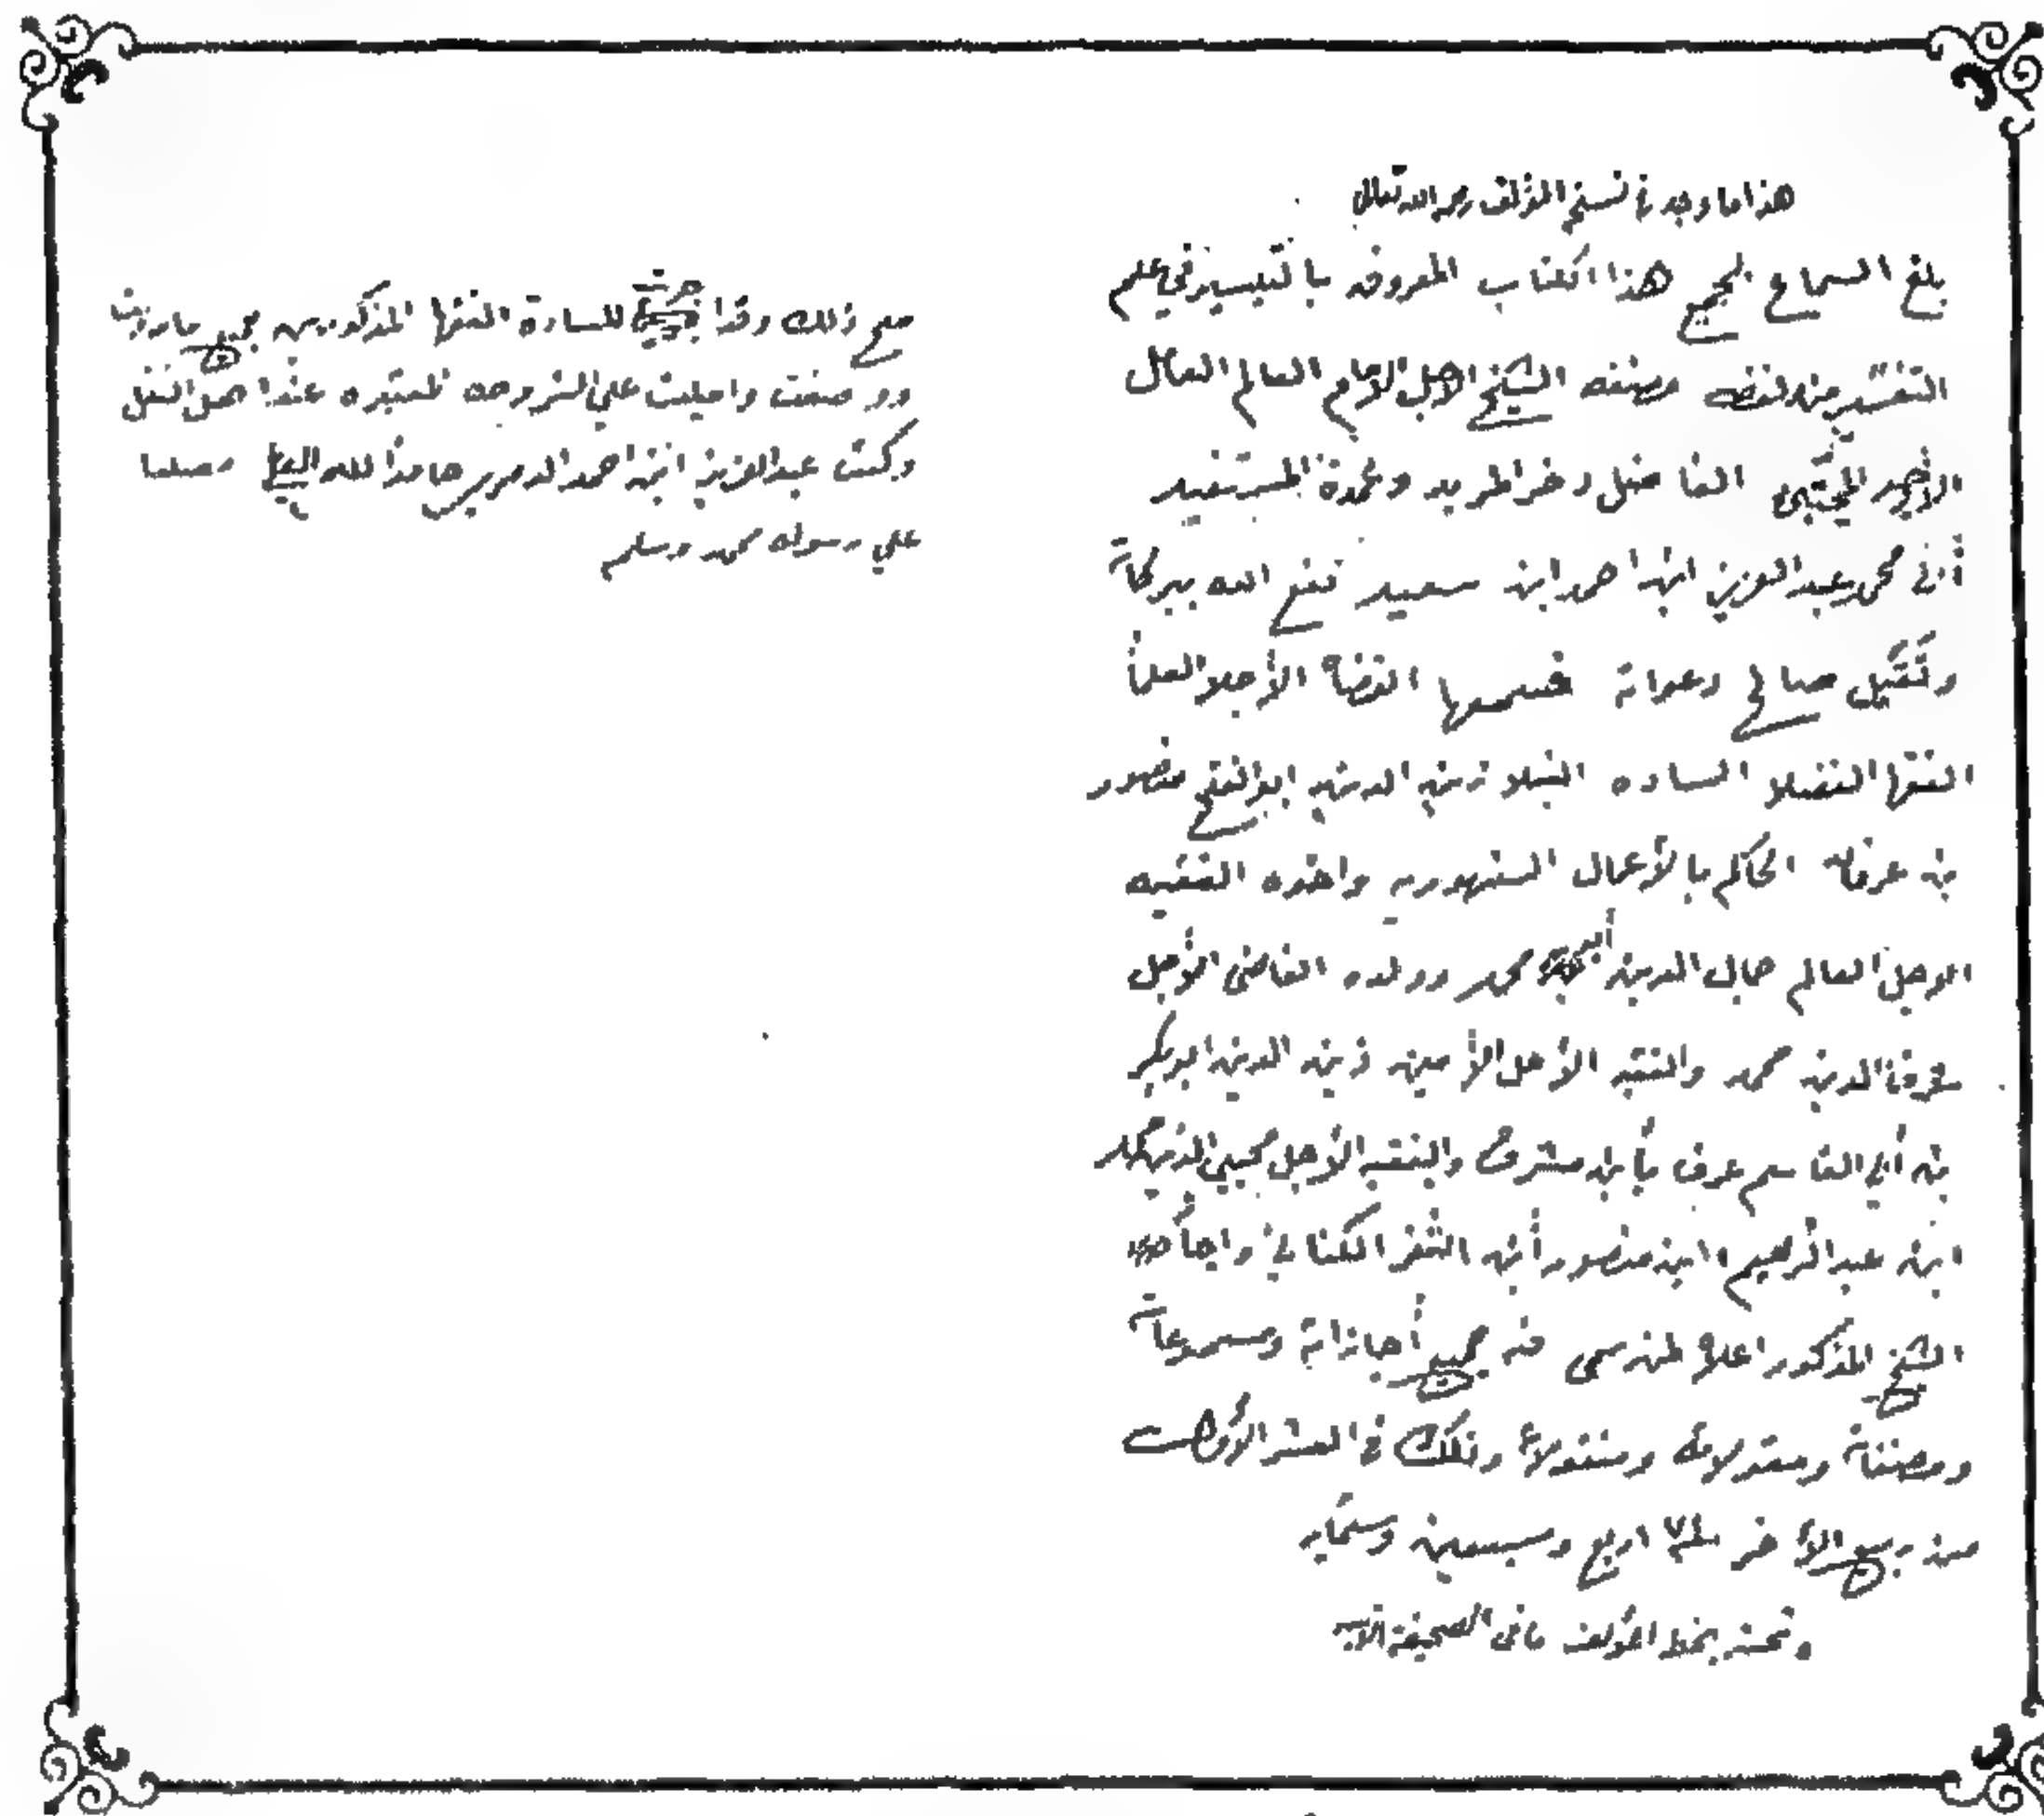 هذا ما وجد في نسخ المؤلف رحمه الله تعالى
بلغ السماع لجميع هذا الكتاب المعروف بالتيسير في علم
التفسير من لفظه مصنفه الشيخ الاجل الامام العالم العامل
الأوحد المجتبى الفاضل ذخر المريد وعمدة المستفيد
أبى محمد عبد العزيز ابن احمد ابن سعيد نفع الله ببركاته
وتقبل صالح دعواته فسمعها القضاة الأجلا العلمأ
الفقها الفضلا الساده النبلا زين الدين ابو الفتح منصور
بن عرفه الحاكم بالأعمال السنهوريه واخوه الفقيه
الاجل العالم جمال الدين محمد وولده القاضى الأجل
شرف الدين محمد والفقيه الأجل الأمين زين الدين ابو بكر
بن أبي القاسم عرف بأبن مشرف والفقيه الأجل محيى الدين محمد
ابن عبد الرحيم ابن منصور أبن الكنانى واجاز
الشيخ المذكور اعلاه لمن سمى منه جميع أجازاته ومسموعاته
ومصنفاته ومقولاته ومنقولاته وذلك في العشر الأوسط
من ربيع الأخر سنة ٦٧٤ اربع وسبعين وستمايه
وتحته بخط المؤلف ما فى الصحيفة الآتية
صح ذلك وقد اجزت للسادة الفقها المذكورين جميع ما رويت
وصنفت وامليت على الشروط المعتبره عند اهل النقل
وكتب عبد العزيز ابن احمد الديريني حامدا لله العظيم مصليا
على رسوله محمد وسلم